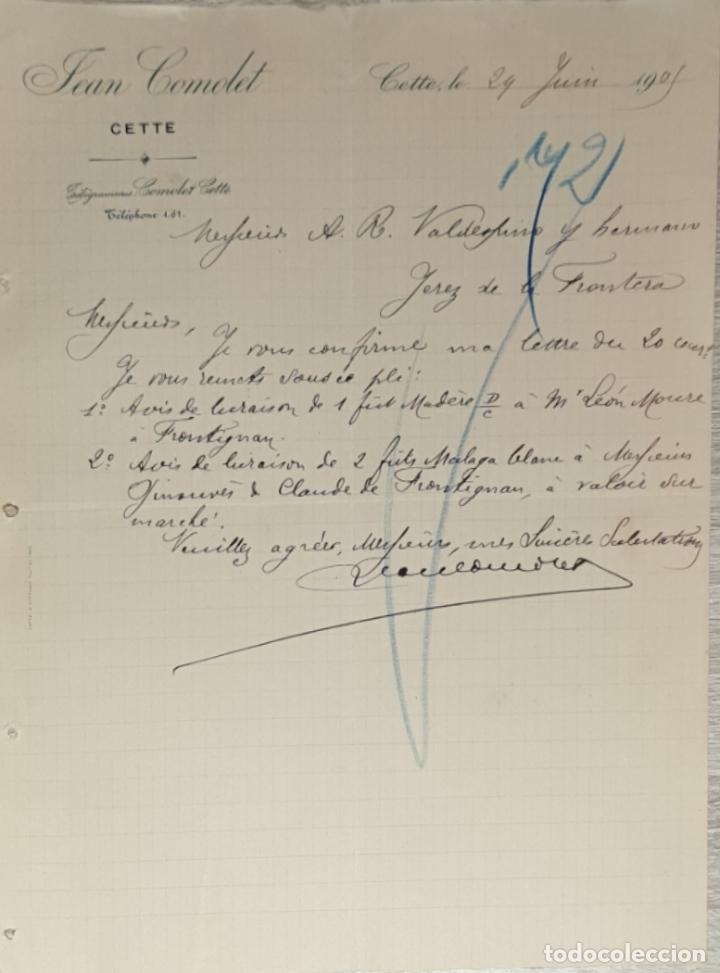 Jean Comolet
CETTE
Télégrammes Comolet Cette
Téléphone 4.01.
Cette, le 29 Juin 1905
Messieurs A. R. Valdespino y hermano
Jerez de la Frontera
Messieurs,
Je vous confirme ma lettre du 20 court
Je vous remets sous ce pli:
1º Avis de livraison de 1 fût Madère D/C à Mr León Moure
à Frontignan.
2º Avis de livraison de 2 fûts Malaga blanc à Messieurs
Ginouvès & Claude de Frontignan, à valoir sur
marché.
Veuillez agréer, Messieurs, mes Sincères Salutations
Jean Comolet
todocoleccion.net